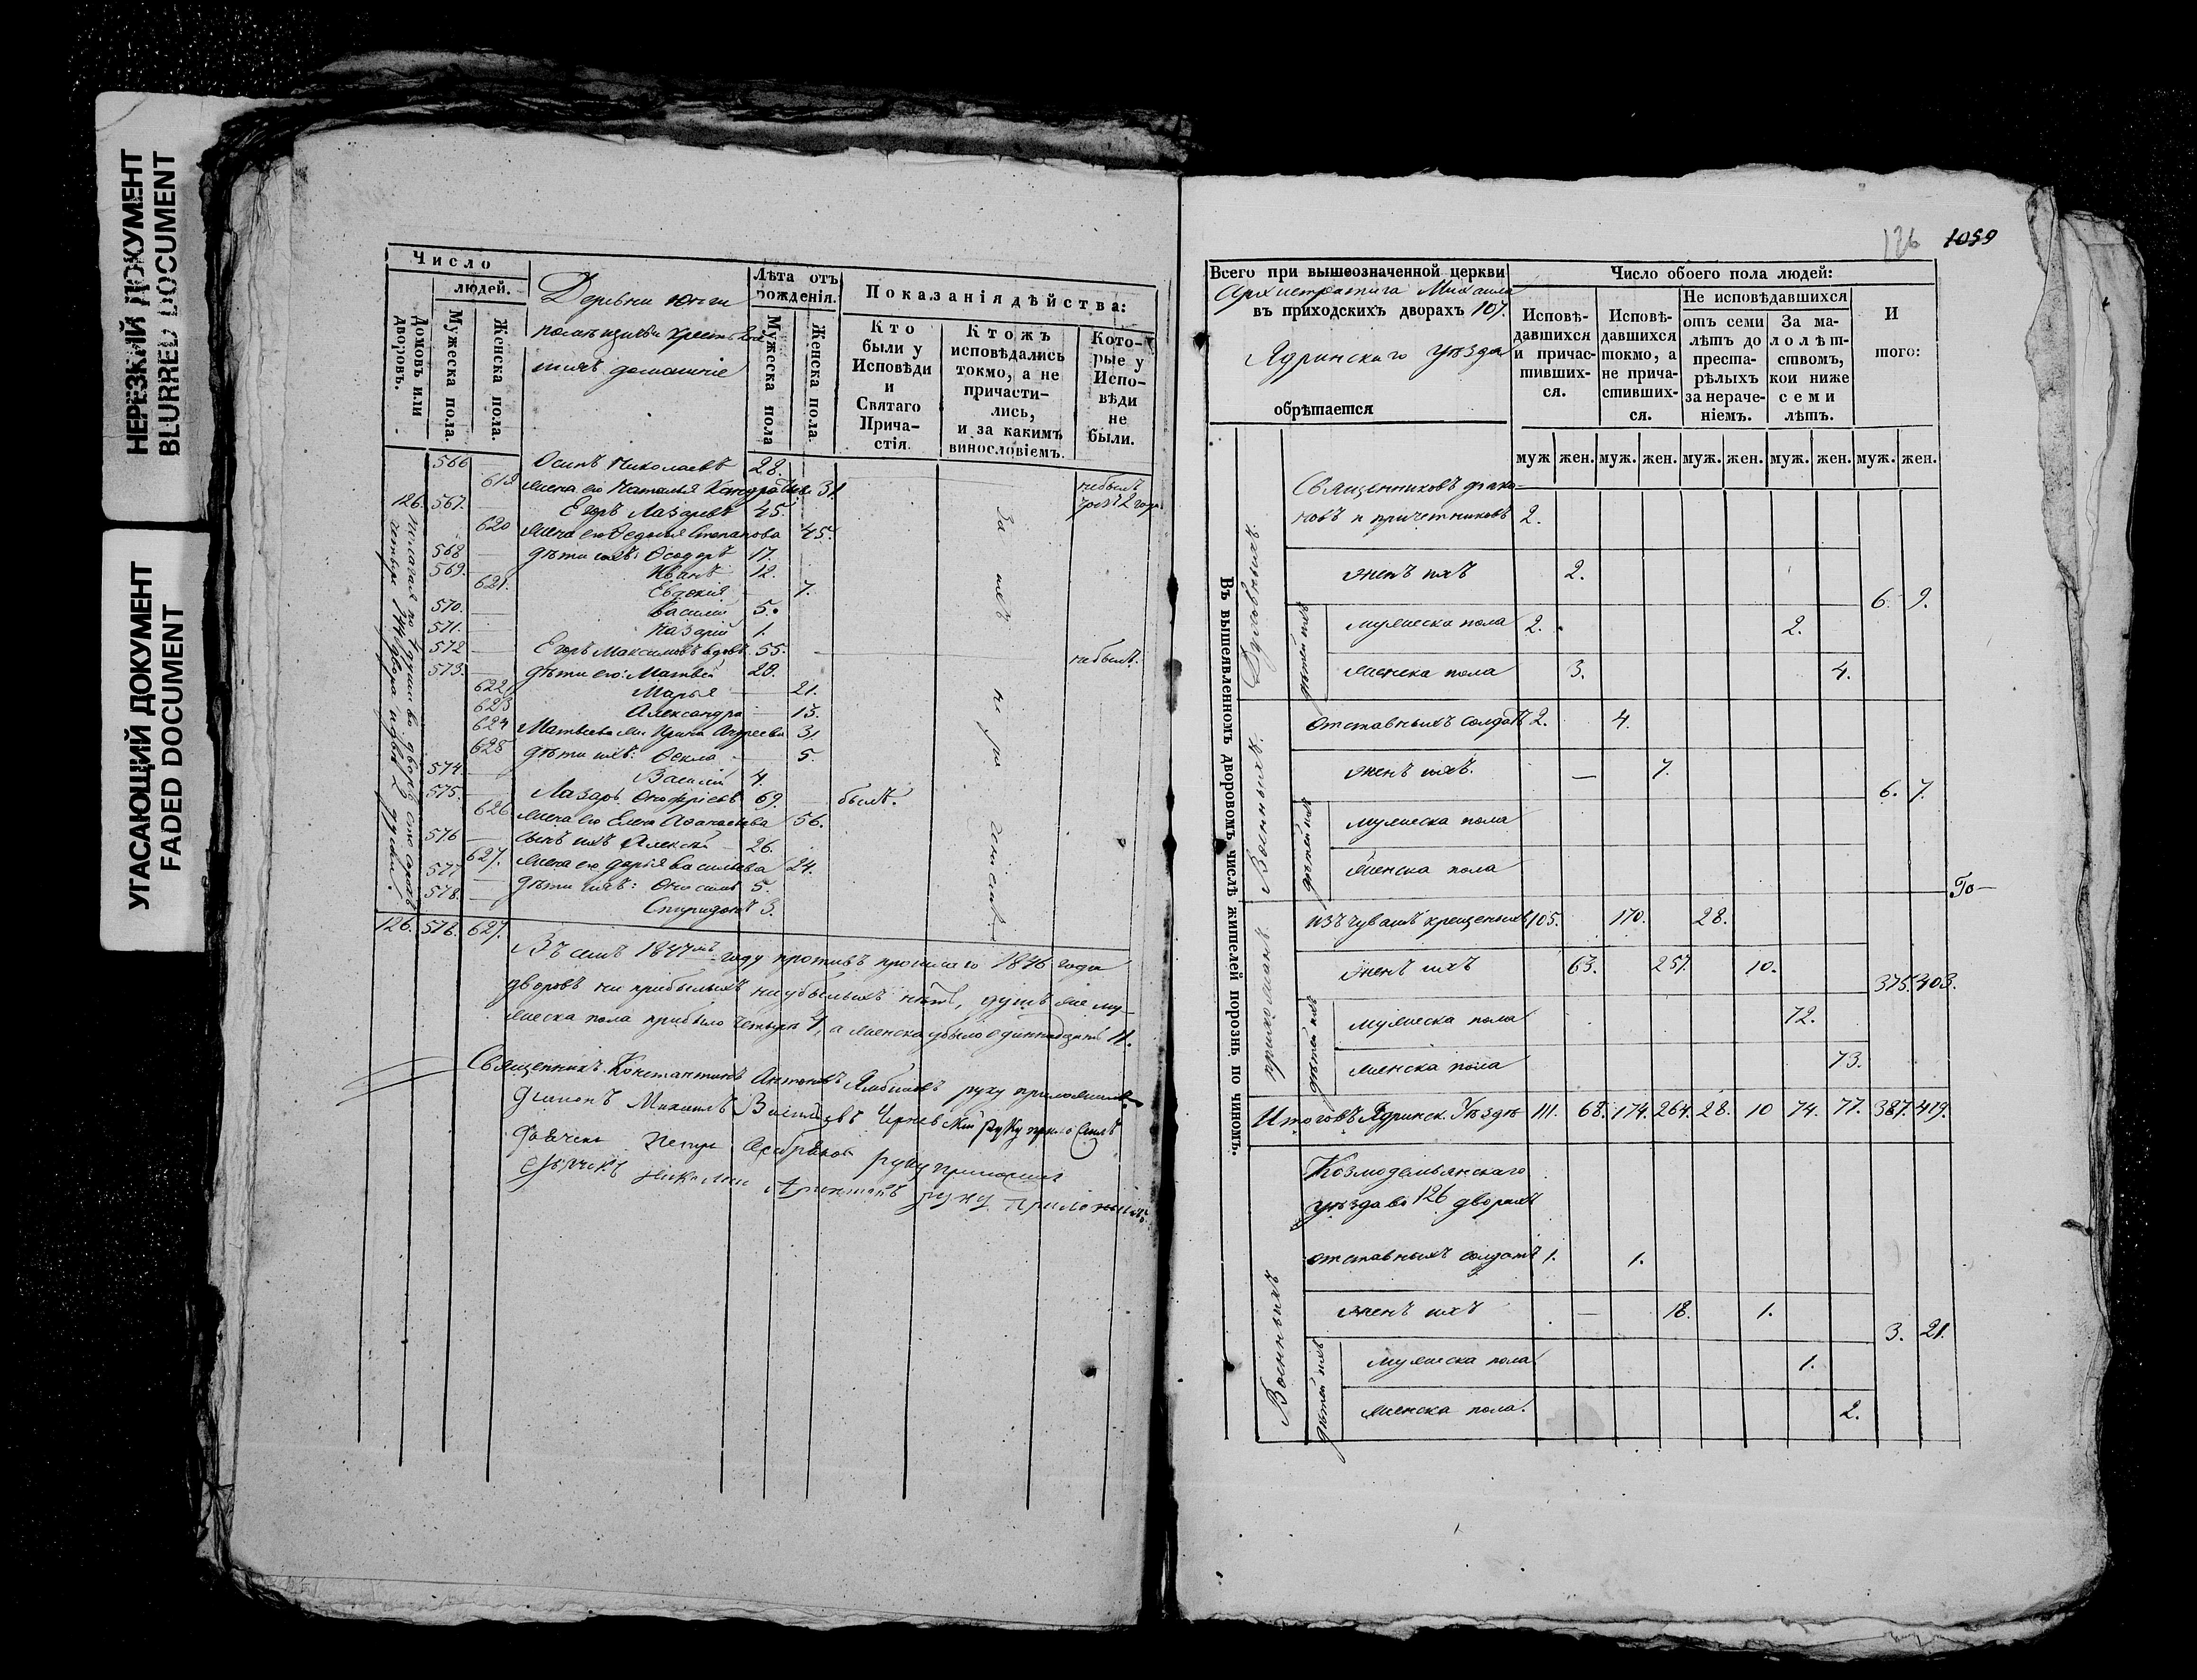 НЕРЕЗКИЙ ДОКУМЕНТ
BLURRED DOCUMENT
УГАСАЮЩИЙ ДОКУМЕНТ
FADED DOCUMENT
Число
людей.
Домовъ или дворовъ.
Мужеска пола.
Женска пола.
Деревни Юнги
помѣщичьи крестья
домашніе
Лѣта отъ рожденія.
Мужеска пола
Женска пола.
Показанія дѣйства:
Кто были у Исповѣди и Святаго Прича-стія.
Ктожъ исповѣдались токмо, а не причасти-лись, и за какимъ винословіемъ.
Кото-рые у Испо-вѣди не были.
566 Осипъ Николаевъ 28.
619 жена его Наталья Кондратьева 31
небылъ 2 года
126. 567. Егоръ Лазаревъ 45.
620 жена его Ѳедосья Степанова 45.
568 дѣти ихъ: Ѳеодоръ 17.
569. Иванъ 12.
621. Евдокія 7.
570. Василій 5.
571. Назарій 1.
572 Егоръ Максимовъ вдовъ 55. небылъ.
573. дѣти его: Матвей 28.
622 Марья 21.
623 Александра 13.
624 Матвеева жена Ирина Андреева 31
625 дѣти ихъ: Ѳекла 5.
574. Василій 4.
575. Лазарь Онофріевъ 69. былъ.
626 жена его Елена Афанасьева 56.
576 сынъ ихъ Алексѣй 26.
627. жена его Дарья Васильева 24.
577 дѣти ихъ: Онисимъ 5.
578. Спиридонъ 3.
126. 578. 627.
Въ семъ 1847мъ году противъ прошлаго 1846 года
дворовъ ни прибылыхъ ниубылыхъ нѣтъ, душъ же му-
жеска пола прибыло четыре 4, а женска убыло одиннадцать 11.
Священникъ Константинъ Антоновъ руку приложилъ
Діаконъ Михаилъ Чернавскій руку приложилъ
Дьячекъ Петръ руку приложилъ
Николай руку приложилъ
126 1059
Всего при вышеозначенной церкви
Архистратига Михаила
въ приходскихъ дворахъ 107.
Ядринскаго уѣзда
обрѣтается
Число обоего пола людей:
Исповѣ-давшихся и причас-тивших-ся.
Исповѣ-давшихся токмо, а не прича-стивших-ся.
Не исповѣдавшихся
отъ семи лѣтъ до преста-рѣлыхъ за нераче-ніемъ.
За ма-лолѣт-ствомъ, кои ниже семи лѣтъ.
И того:
муж жен. муж. жен. муж. жен. муж. жен. муж. жен.
Въ вышеявленномъ дворовомъ числѣ жителей порознь, по чиномъ.
Духовныхъ.
Священниковъ діако-
новъ и причетниковъ 2.
женъ ихъ 2.
6. 9.
дѣтей ихъ
мужеска пола 2. 2.
женска пола 3. 4.
Военныхъ.
отставныхъ солдатъ 2. 4.
женъ ихъ. — 7.
6. 7.
дѣтей ихъ
мужеска пола
женска пола
Го-
прихожанъ
изъ чувашъ крещеныхъ 105. 170. 28.
женъ ихъ 63. 257. 10.
375. 403.
дѣтей ихъ
мужеска пола 72.
женска пола 73.
Итого въ Ядринск. Уѣздѣ 111. 68. 174. 264. 28. 10 74. 77. 387. 419.
Козмодемьянскаго
уѣзда во 126 дворахъ
Военныхъ
отставныхъ солдатъ 1. 1.
женъ ихъ — 18. 1.
3. 21.
дѣтей ихъ
мужеска пола 1.
женска пола. 2.